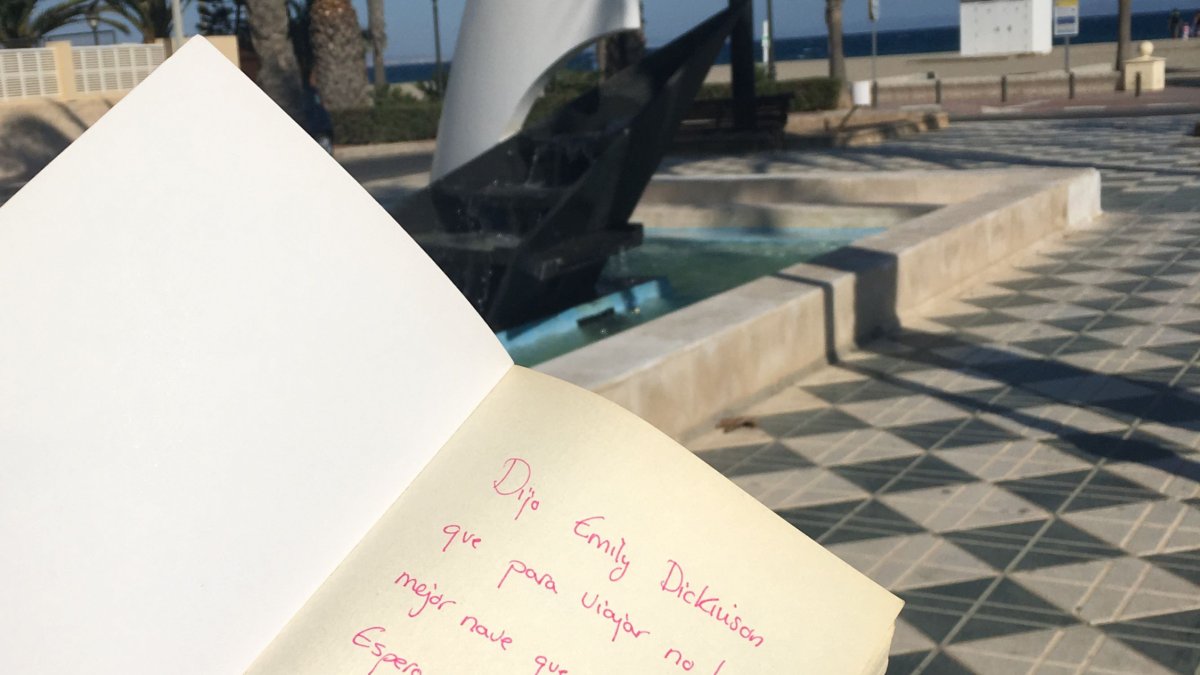 Dijo Emily Dickinson
que para viajar no
mejor nave que
Espero